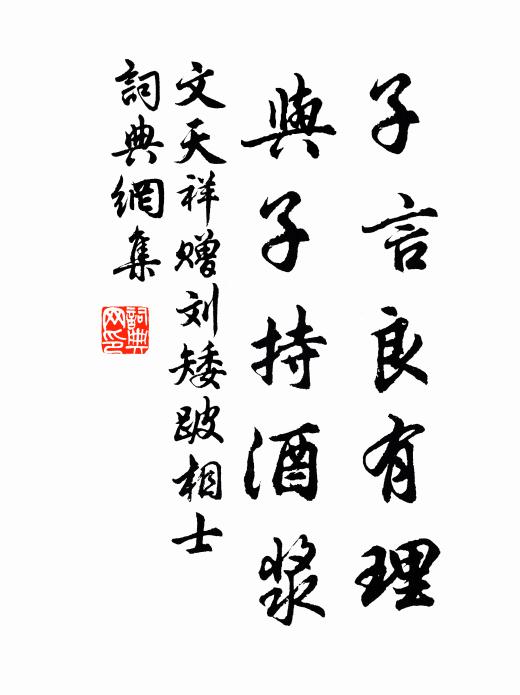 子言良有理
與子持酒漿
文天祥赠刘矮跛相士
詞典網集
詞典网印